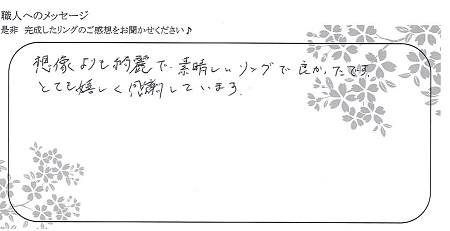 職人へのメッセージ
是非 完成したリングのご感想をお聞かせください♪
想像よりも綺麗で、素晴しいリングで良かったです。
とても嬉しく感謝しています。